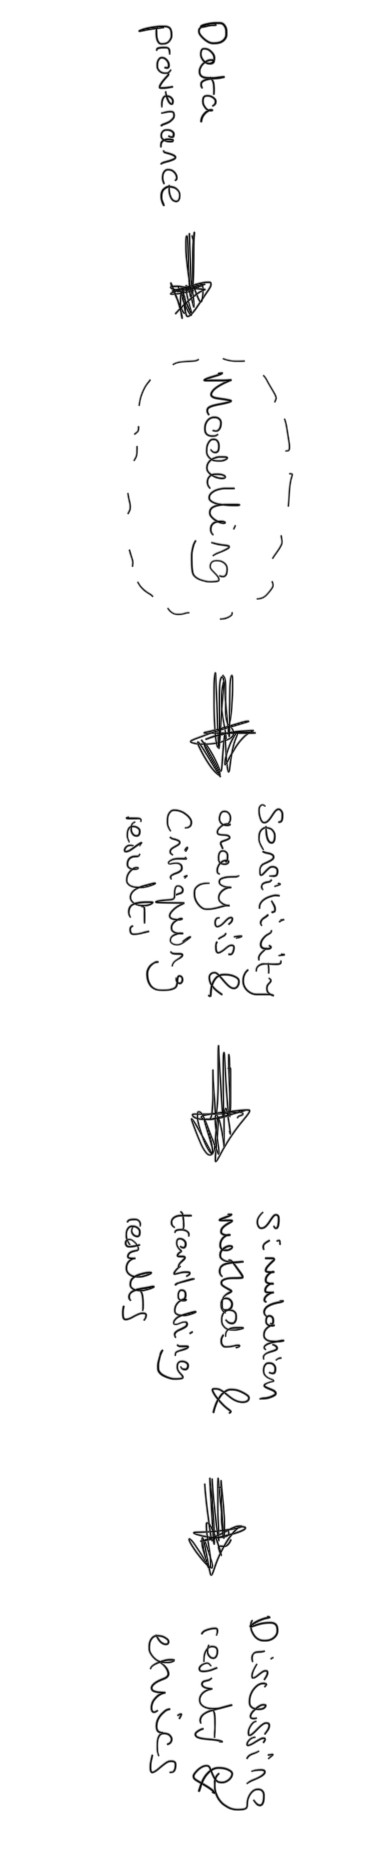 Data
provenance
Modelling
Sensitivity
analysis &
Critiquing
results
Simulation
methods &
translating
results
Discussing
results &
ethics